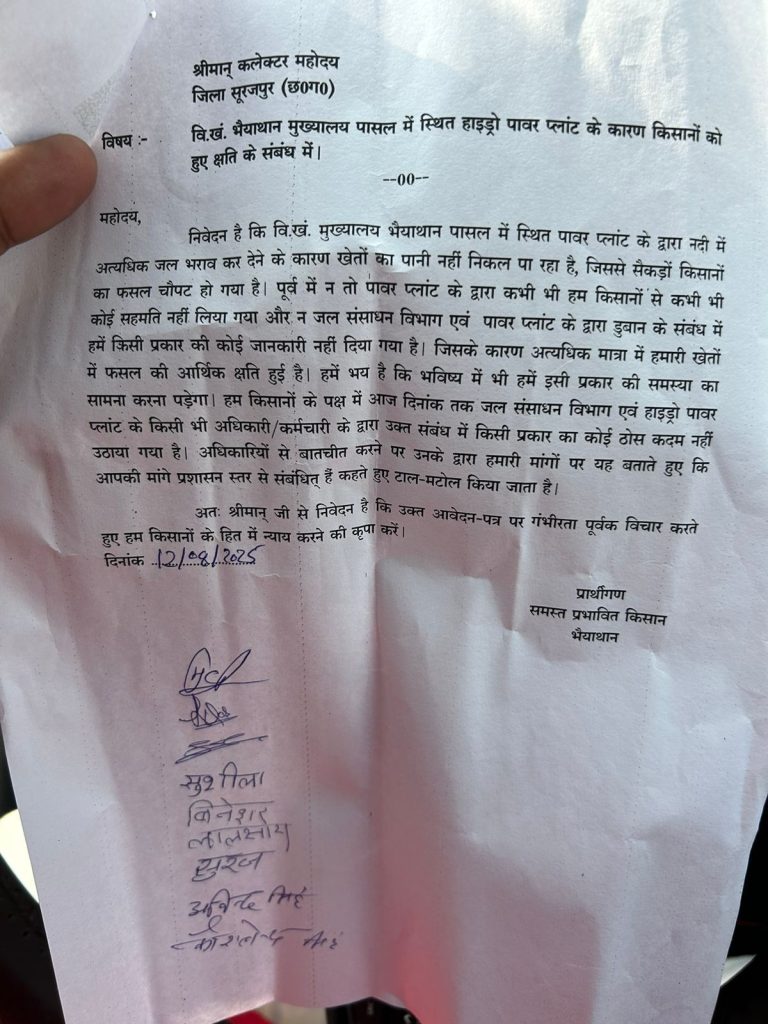 श्रीमान् कलेक्टर महोदय
जिला सूरजपुर (छ०ग०)
विषय :- वि.खं. भैयाथान मुख्यालय पासल में स्थित हाइड्रो पावर प्लांट के कारण किसानों को
हुए क्षति के संबंध में।
--00--
महोदय,
निवेदन है कि वि.खं. मुख्यालय भैयाथान पासल में स्थित पावर प्लांट के द्वारा नदी में
अत्यधिक जल भराव कर देने के कारण खेतों का पानी नहीं निकल पा रहा है, जिससे सैकड़ों किसानों
का फसल चौपट हो गया है। पूर्व में न तो पावर प्लांट के द्वारा कभी भी हम किसानों से कभी भी
कोई सहमति नहीं लिया गया और न जल संसाधन विभाग एवं पावर प्लांट के द्वारा डुबान के संबंध में
हमें किसी प्रकार की कोई जानकारी नहीं दिया गया है। जिसके कारण अत्यधिक मात्रा में हमारी खेतों
में फसल की आर्थिक क्षति हुई है। हमें भय है कि भविष्य में भी हमें इसी प्रकार की समस्या का
सामना करना पड़ेगा। हम किसानों के पक्ष में आज दिनांक तक जल संसाधन विभाग एवं हाइड्रो पावर
प्लांट के किसी भी अधिकारी/कर्मचारी के द्वारा उक्त संबंध में किसी प्रकार का कोई ठोस कदम नहीं
उठाया गया है। अधिकारियों से बातचीत करने पर उनके द्वारा हमारी मांगों पर यह बताते हुए कि
आपकी मांगे प्रशासन स्तर से संबंधित् हैं कहते हुए टाल-मटोल किया जाता है।
अतः श्रीमान् जी से निवेदन है कि उक्त आवेदन-पत्र पर गंभीरता पूर्वक विचार करते
हुए हम किसानों के हित में न्याय करने की कृपा करें।
दिनांक 12/08/2025
प्रार्थीगण
समस्त प्रभावित किसान
भैयाथान
सुशीला
सुरज